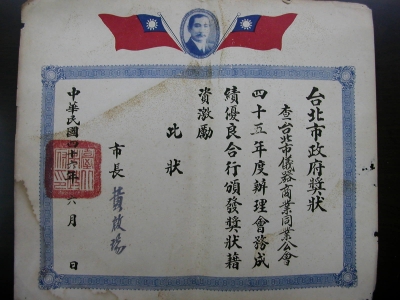 台北市政府獎狀
查台北市儀器商業同業公會
四十五年度辦理會務成
績優良合行頒發獎狀藉
資激勵
此狀
市長 黃啟瑞
中華民國四十六年六月 日